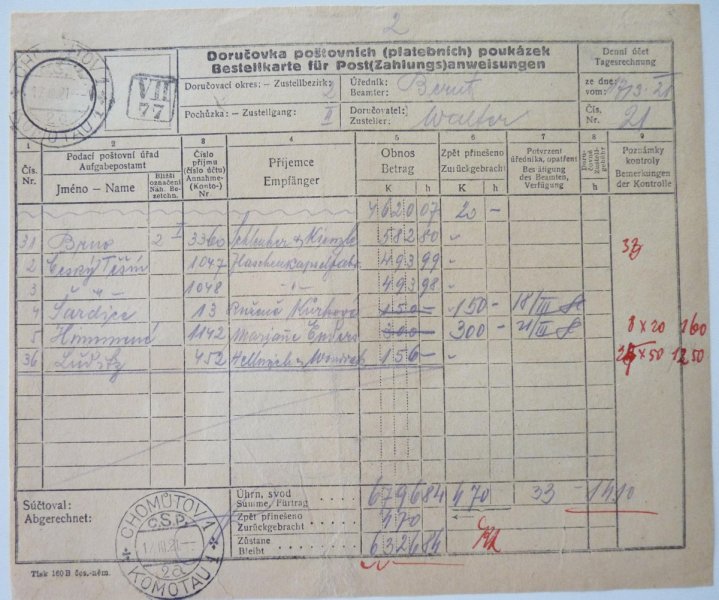 2
CHOMÚTOV 1
KOMOTAU 1
2a
VII
77
Doručovka poštovních (platebních) poukázek
Bestellkarte für Post(Zahlungs)anweisungen
Denní účet
Tagesrechnung
Doručovací okres: – Zustellbezirk: 2
Úředník:
Beamter:
ze dne:
vom:
Pochůzka: – Zustellgang: II
Doručovatel:
Zusteller: Walter
Čís.
Nr. 21
1 2 3 4 5 6 7 8 9
Čís.
Nr.
Podací poštovní úřad
Aufgabepostamt
Jméno – Name
Bližší
označení
Näh. Be-
zeichn.
Číslo
příjmu
(číslo účtu)
Annahme-
(Konto-)
Nr
Příjemce
Empfänger
Obnos
Betrag
K h
Zpět přinešeno
Zurückgebracht
K h
Potvrzení
úředníka, opatření
Bestätigung
des Beamten,
Verfügung
h
Poznámky
kontroly
Bemerkungen
der Kontrolle
462007 20 –
31 Brno 2 3360 58280 "
2 Český Těšín 1047 49399 "
3 " 1048 – " – 49398 "
4 Sardice 13 150 – 150 – 18/III
5 1142 300 – 300 – 21/III 8 x 20 160
36 Luditz 452 156 – " x 50 1250
Súčtoval:
Abgerechnet:
Úhrn, svod
Summe, Fürtrag . . . . 679684 470 33 1410
Zpět přinešeno
Zurückgebracht . . . . 470
Zůstane
Bleibt . . . . 632684
CHOMÚTOV 1
Č.S.P.
17.III.21
2a
KOMOTAU 1
Tisk 160 B čes.-něm.